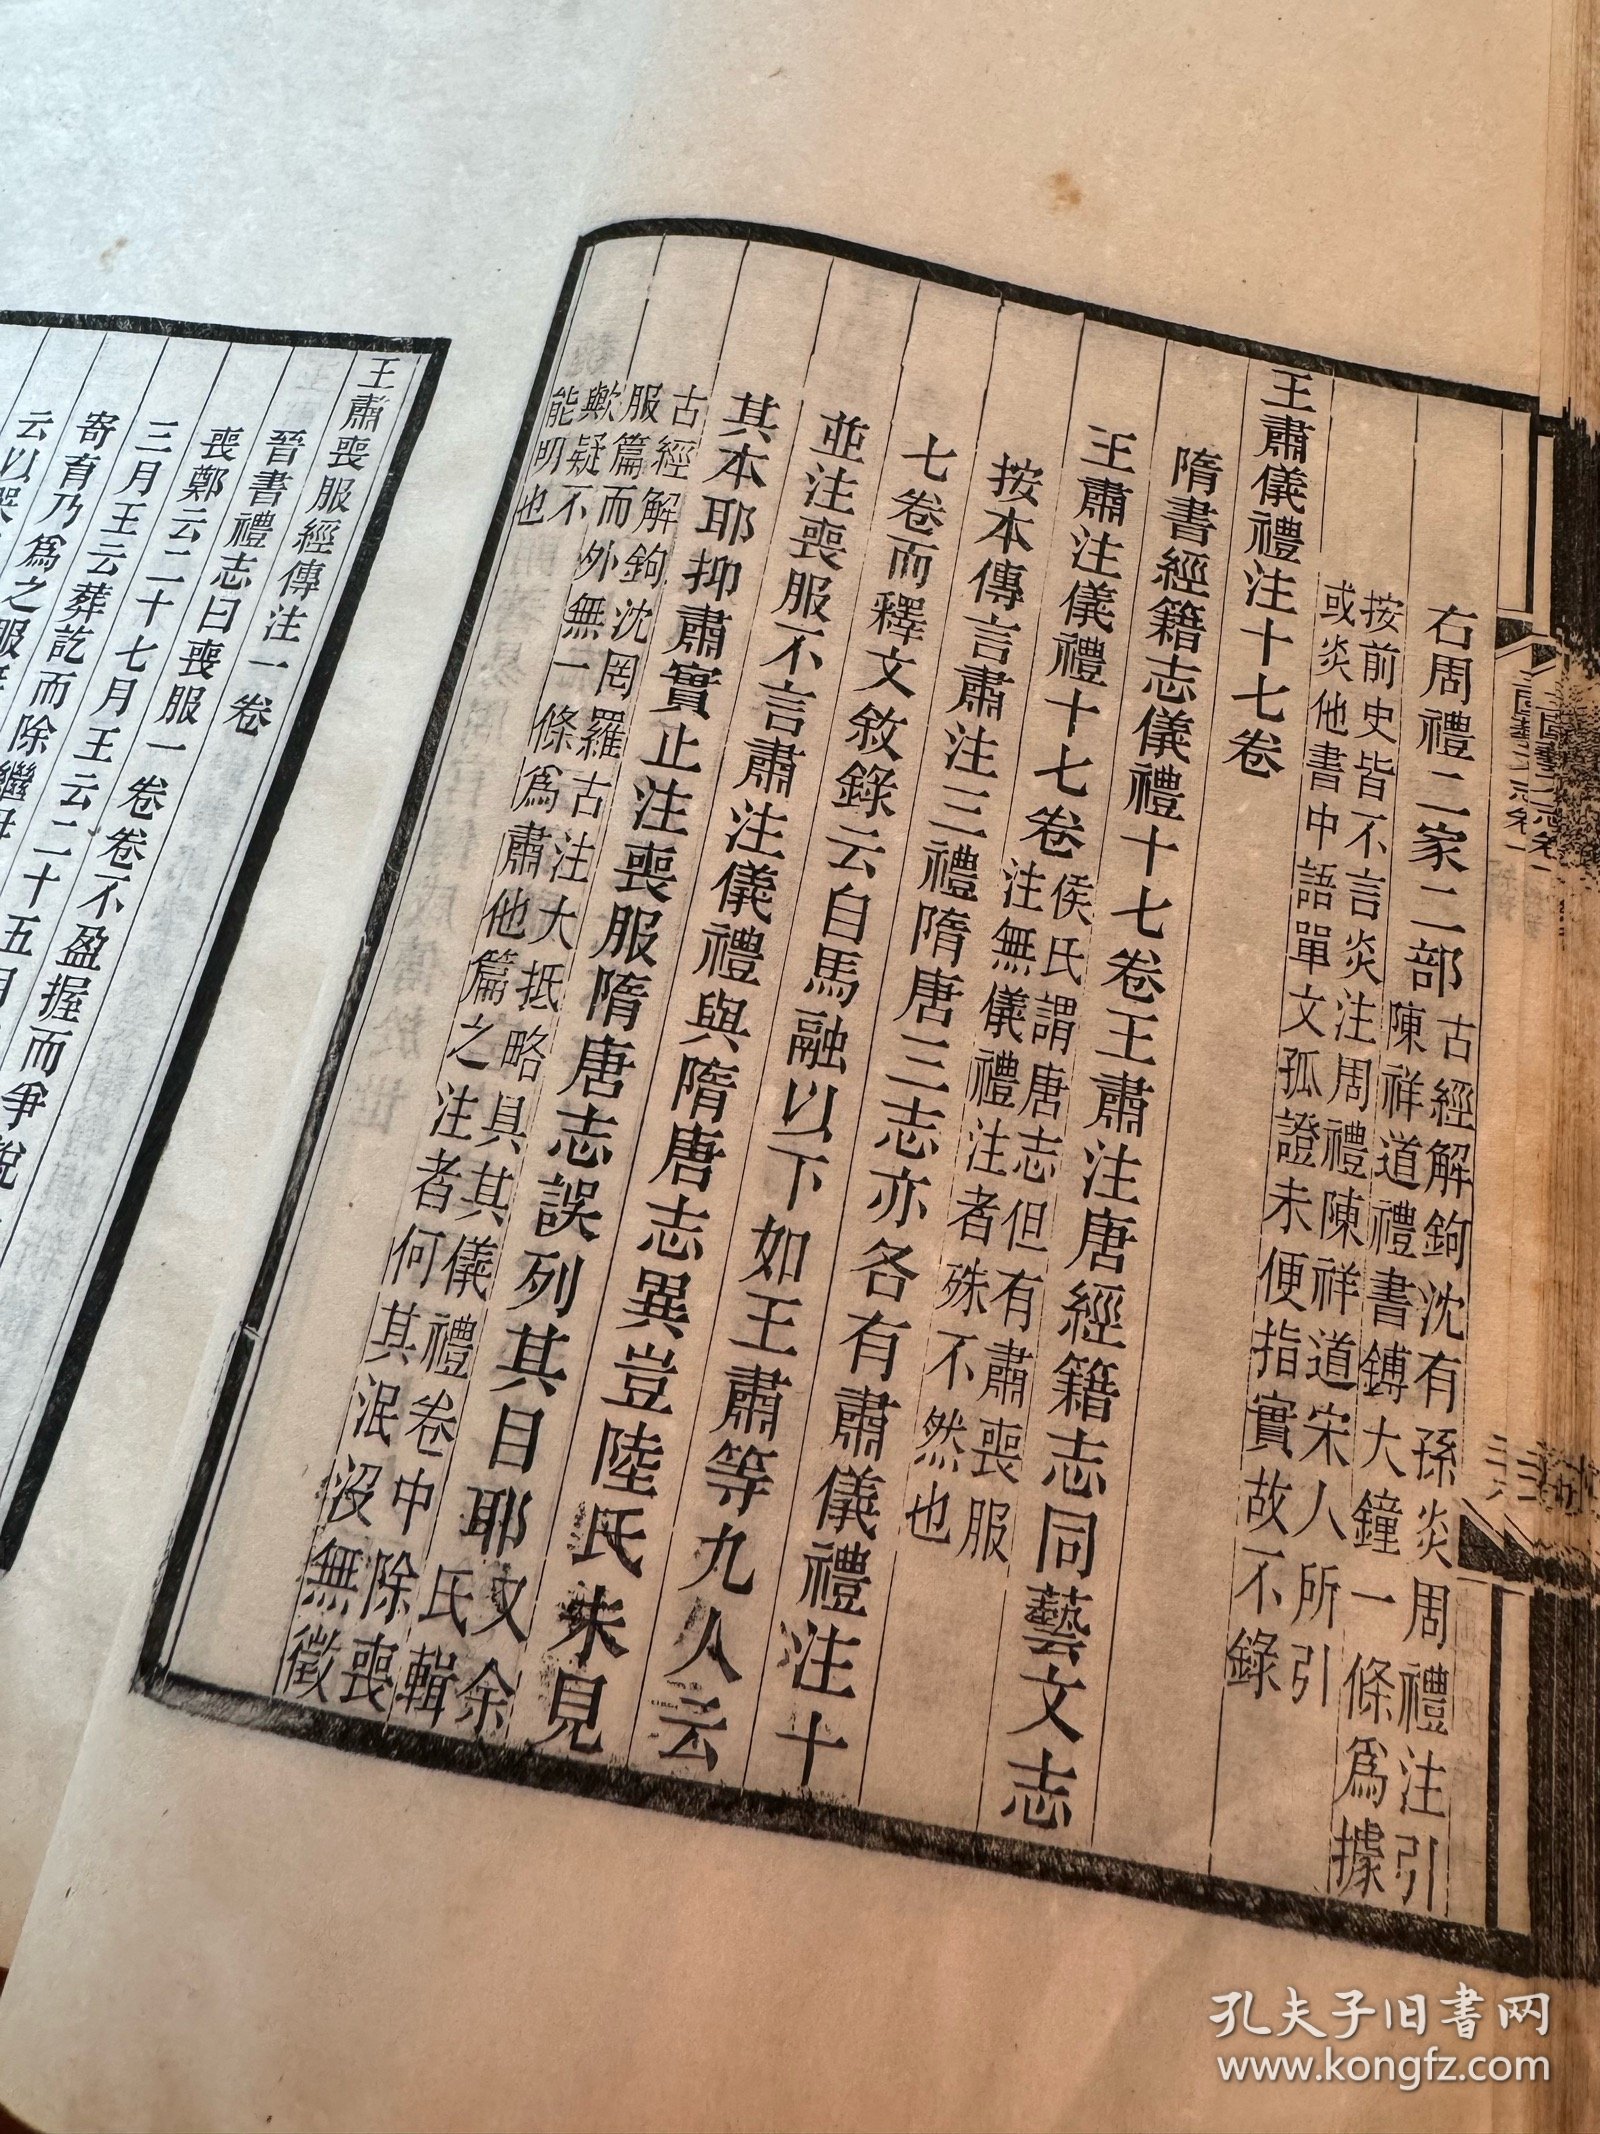 右周禮二家二部古經解鉤沈有孫炎周禮注引
陳祥道禮書鎛大鐘一條爲據
按前史皆不言炎注周禮陳祥道宋人所引
或炎他書中語單文孤證未便指實故不錄
王肅儀禮注十七卷
隋書經籍志儀禮十七卷王肅注唐經籍志同藝文志
王肅注儀禮十七卷侯氏謂唐志但有肅喪服
注無儀禮注者殊不然也
按本傳言肅注三禮隋唐三志亦各有肅儀禮注十
七卷而釋文敘錄云自馬融以下如王肅等九人云
並注喪服不言肅注儀禮與隋唐志異豈陸氏未見
其本耶抑肅實止注喪服隋唐志誤列其目耶又余氏輯
古經解鉤沈罔羅古注大抵略具其儀禮卷中除喪
服篇而外無一條爲肅他篇之注者何其泯沒無徵
歟疑不
能明也
王肅喪服經傳注一卷
晉書禮志曰喪服一卷卷不盈握而爭說
喪鄭云二十七月王云二十五月
三月王云葬訖而除繼母
寄育乃爲之服
云以哭
三國藝文志卷一
孔夫子旧书网
www.kongfz.com